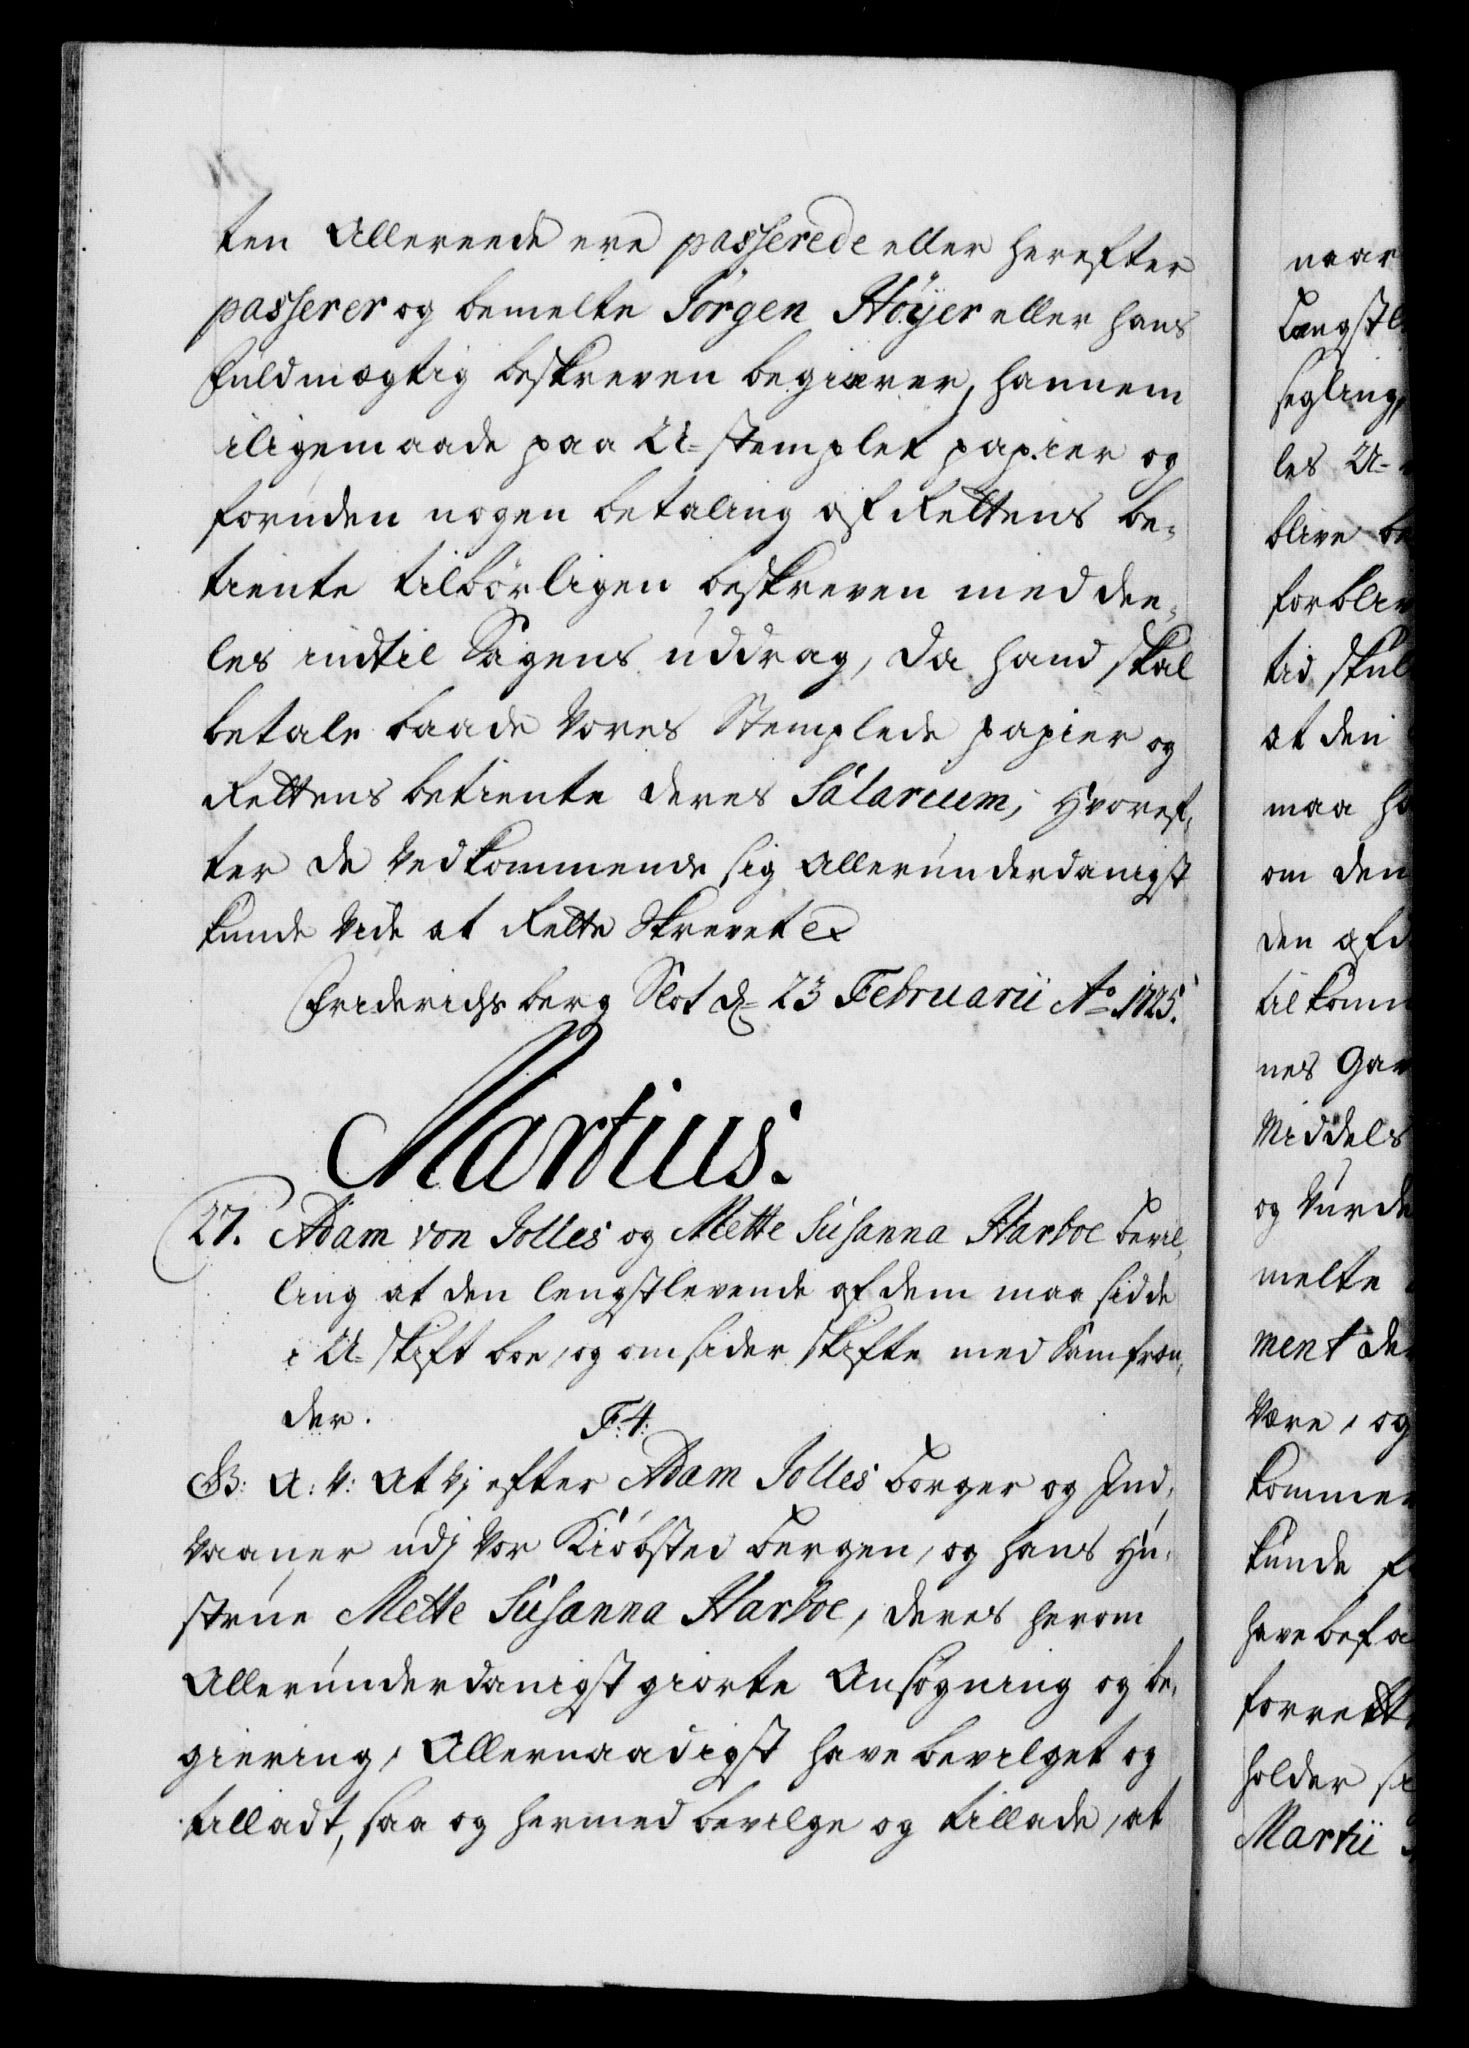 ten Allereede ere passerede eller herefter
passerer og bemelte Jörgen Höyer eller hans
fuldmægtig beskreven begiærer, hannem
iligemaade paa U-stemplet papier og
foruden nogen betaling af Rettens be-
tiente tilbörligen beskreven meddee-
les indtil Sagens uddrag, da hand skal
betale baade Vores Stemplede papier og
Rettens betiente deres Salarium, Hvoref-
ter de Vedkommende sig Allerunderdanigst
kunde Vide at Rette Skrevet
Friderichsberg Slot d= 23 Februarii Ao 1725.
Martius.
27. Adam von Jolles og Mette Susanna Harboe bevil-
ling at den lengstlevende af dem maa sidde
i U-skift boe, og omsider skifte med Samfræn-
der.
F:4:
G: A: V: At Vj efter Adam Jolles borger og Ind-
vaaner udj Vor Kiöbsted bergen, og hans Hu-
strue Mette Susanna Harboe, deres herom
Allerunderdanigst giorte Ansögning og be-
giering, Allernaadigst have bevilget og
tilladt, saa og hermed bevilge og tillade, at
naar
Længstl
segling,
les U-
blive be
forbliv
tid skul
at den
maa h
om den
den afd
tilkomm
nes Gav
Middels
og Vurde
melte
ment de
være, og
kommer
kunde f
have befa
forrett
holder s
Martii